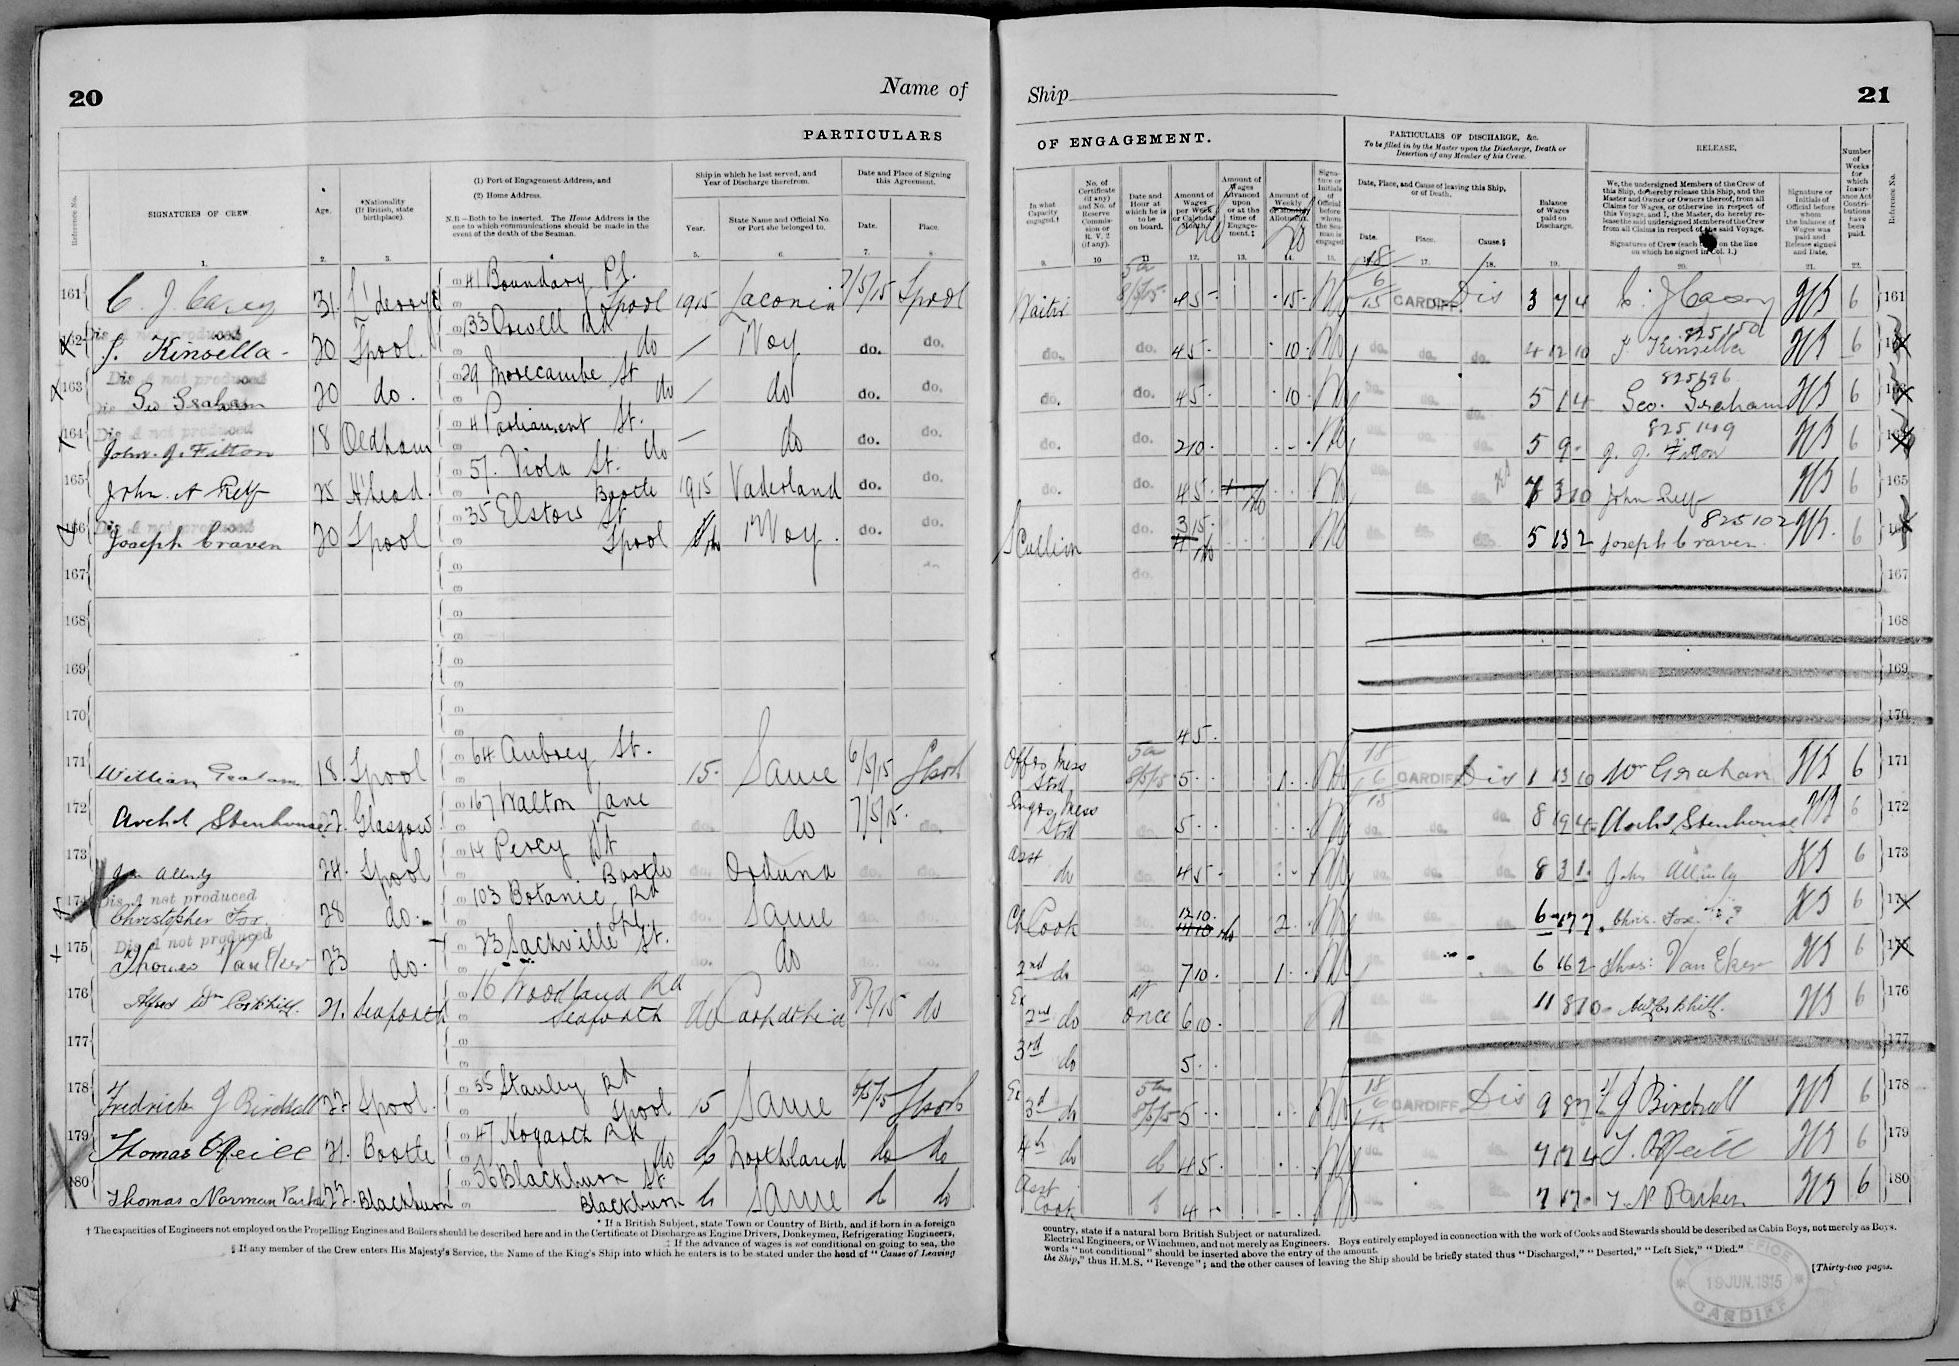 20
Name of
PARTICULARS
Reference No.
SIGNATURES OF CREW
1.
Age.
2.
*Nationality
(If British, state
birthplace).
3.
(1) Port of Engagement Address, and
(2) Home Address.
N.B.—Both to be inserted. The Home Address is the
one to which communications should be made in the
event of the death of the Seaman.
4
Ship in which he last served, and
Year of Discharge therefrom.
Year.
5.
State Name and Official No.
or Port she belonged to.
6.
Date and Place of Signing
this Agreement.
Date.
7.
Place.
8
161 C. J. Casey 31. L'derry 41 Boundary Pl. Lpool 1915 Laconia 7/5/15 Lpool
Dis A not produced
162 J. Kinsella 20 Lpool. 133 Orwell Rd do / 1 Voy do. do.
Dis A not produced
163 Geo Graham 20 do. 29 Morecambe St do / do do. do.
Dis A not produced
164 John. J. Fitton 18 Oldham 4 Parliament St. do — do do. do.
165 John A Relf 25 B'head. 57. Viola St. Bootle 1915 Vaderland do. do.
Dis A not produced
166 Joseph Craven 20 Lpool 35 Elstow St Lpool 1 Voy. do. do.
167
168
169
170
171 William Graham 18. Lpool 64 Aubrey St. 15. Same 6/5/15 Lpool
172 Archd Stenhouse 22. Glasgow 167 Walton Lane do. do 7/5/15. do.
173 Jn Allenby 24. Lpool 14 Percy St Bootle do. Orduna do. do.
Dis A not produced
174 Christopher Fox. 28 do. 103 Botanic Rd Lpl do. Same do. do.
Dis A not produced
175 Thomas Van Eker 23 do. 23 Sackville St. do. do do. do.
176 Alfred Wm Corkhill. 21. Seaforth 16 Woodland Rd Seaforth do Carpathia 8/5/15 do
177
178 Fredrick J Birdsall 22 Lpool. 35 Stanley Rd Lpool 15 Same Lpool
179 Thomas O'Neill 21. Bootle 47 Hogarth Rd do do Northland do do
180 Thomas Norman Parker 22. Blackburn 56 Blackburn St Blackburn Same do
* If a British Subject, state Town or Country of Birth, and if born in a foreign
† The capacities of Engineers not employed on the Propelling Engines and Boilers should be described here and in the Certificate of Discharge as Engine Drivers, Donkeymen, Refrigerating Engineers,
‡ If the advance of wages is not conditional on going to sea, the
§ If any member of the Crew enters His Majesty's Service, the Name of the King's Ship into which he enters is to be stated under the head of "Cause of Leaving
Ship
21
OF ENGAGEMENT.
PARTICULARS OF DISCHARGE, &c.
To be filled in by the Master upon the Discharge, Death or
Desertion of any Member of his Crew.
RELEASE.
In what
Capacity
engaged.†
9.
No. of
Certificate
(if any)
and No. of
Reserve
Commis-
sion or
R. V. 2
(if any).
10
Date and
Hour at
which he is
to be
on board.
11
Amount of
Wages
per Week
or Calendar
Month.
12.
Amount of
Wages
Advanced
upon
or at the
time of
Engage-
ment.‡
13.
Amount of
Weekly
or Monthly
Allotment.
14.
Signa-
ture or
Initials
of
Official
before
whom
the Sea-
man is
engaged
15.
Date, Place, and Cause of leaving this Ship,
or of Death.
Date.
16.
Place.
17.
Cause.§
18.
Balance
of Wages
paid on
Discharge.
19.
We, the undersigned Members of the Crew of
this Ship, do hereby release this Ship, and the
Master and Owner or Owners thereof, from all
Claims for Wages, or otherwise in respect of
this Voyage, and I, the Master, do hereby re-
lease the said undersigned Members of the Crew
from all Claims in respect of the said Voyage.
Signatures of Crew (each to be on the line
on which he signed in Col. 1.)
20.
Signature or
Initials of
Official before
whom
the balance of
Wages was
paid and
Release signed
and Date.
21.
Number
of
Weeks
for
which
Insur-
ance Act
Contri-
butions
have
been
paid.
22.
Reference No.
Waiter 5am 8/5/15 4 5 15 18/6/15 CARDIFF Dis 3 7 4 C. J Casey 6 161
825150
do. do. 4 5 10 do. do. do. 4 12 10 J Kinsella 6
825196
do. do. 4 5 10 do. do. 5 1 4 Geo. Graham 6
825149
do. do. 2 10 do. do. 5 9 J. J. Fitton 6
do. do. 4 5 do. do. 3 10 John Relf 6 165
825102
Scullion do. 3 15 do. do. 5 13 2 Joseph Craven 6
do. 167
168
169
170
4 5
Offrs Mess Std 5am 8/5/15 5 1 18/6/15 CARDIFF Dis 1 13 10 Wm Graham 6 171
Engrs Mess Std 5 do. do. do. 8 19 4 Archd Stenhouse 6 172
Asst do 4 5 do. do. do. 8 3 1 John Allenby 6 173
Ch Cook do. 12 10 2 do. do. do. 6 17 7 Chris. Fox 6
2nd do do. 7 10 1 do. do. 6 16 2 Thos: Van Eker 6
Ex 2nd do At once 6 10 do. do. 11 8 10 6 176
3rd do 5 177
Ex 3d do 5am 8/5/15 5 18/6/15 CARDIFF Dis 9 8 7 F J Birdsall 6 178
4th do 4 5 do. do. 7 17 4 T. O'Neill 6 179
Asst Cook 4 do. do. 7 17 T N Parker 6 180
country, state if a natural born British Subject or naturalized.
Electrical Engineers, or Winchmen, and not merely as Engineers. Boys entirely employed in connection with the work of Cooks and Stewards should be described as Cabin Boys, not merely as Boys.
words "not conditional" should be inserted above the entry of the amount.
the Ship," thus H.M.S. "Revenge"; and the other causes of leaving the Ship should be briefly stated thus "Discharged," "Deserted," "Left Sick," "Died."
[Thirty-two pages.
19 JUN. 1915
CARDIFF